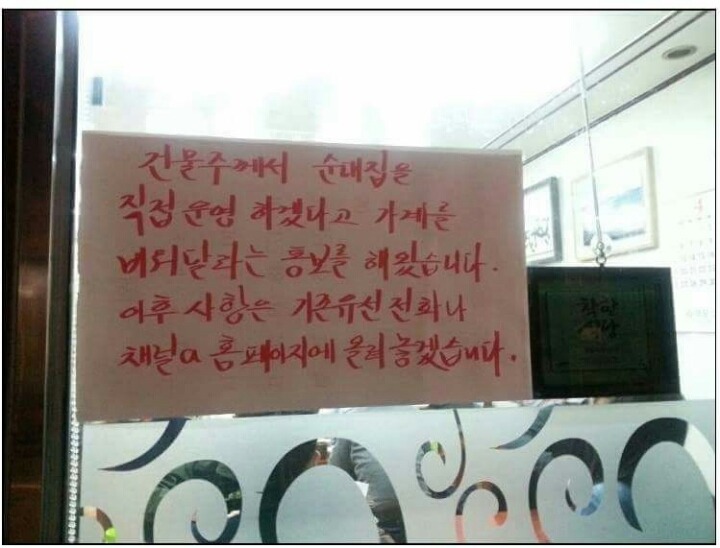 건물주께서 순대집을
직접 운영 하겠다고 가게를
비워달라는 통보를 해왔습니다.
이후 사항은 기존유선전화나
채널a 홈페이지에 올려 놓겠습니다.
착한
식당
4